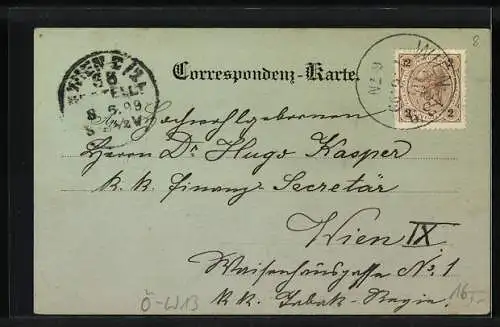 8
WIEN
Correspondenz-Karte.
2 2
2 2
BESTELLT
8. 5. 99
Hochwohlgeboren
Herrn Dr Hugo Kasper
k. k. Finanz-Secretär
Wien IX
Waisenhausgasse No. 1
k. k. Tabak-Regie.
Ö-W13
16,-